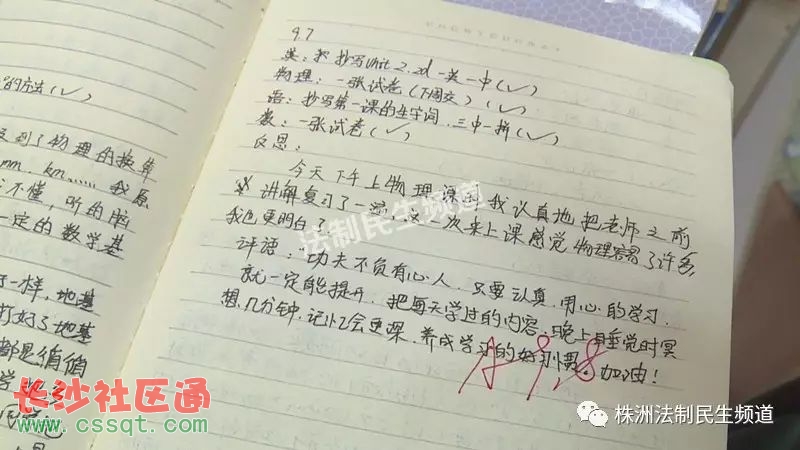 的方法(✓)
到了物理的换算
mm, km……我原
不懂,听的脑
一定的数学基
一样,地基
打好了地基
都是俏俏
9.7
英:把抄写Unit 2, 2d 一英一中(✓)
物理:一张试卷(下周交)(✓)
语:抄写第一课的生字词,三中一拼(✓)
数:一张试卷(✓)
反思:
今天下午上物理课前我认真地把老师之前
讲解复习了一遍,这一次来上课感觉物理容易了许多,
我也更明白了
评语:功夫不负有心人,只要认真,用心的学习,
就一定能提升,把每天学过的内容,晚上睡觉时冥
想几分钟,记忆会更深,养成学习的好习惯。加油!
A 9.8
法制民生频道
长沙社区通
www.cssqt.com
株洲法制民生频道